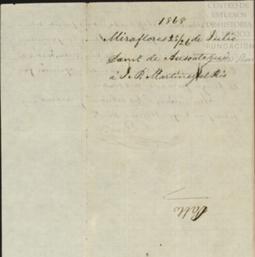 CENTRO DE
ESTUDIOS
DE HISTORIA
DE MÉXICO
FUNDACIÓN
1868
Miraflores 25/26 de Julio
Sant. de
à J. P. Martinez del Rio
Pablo